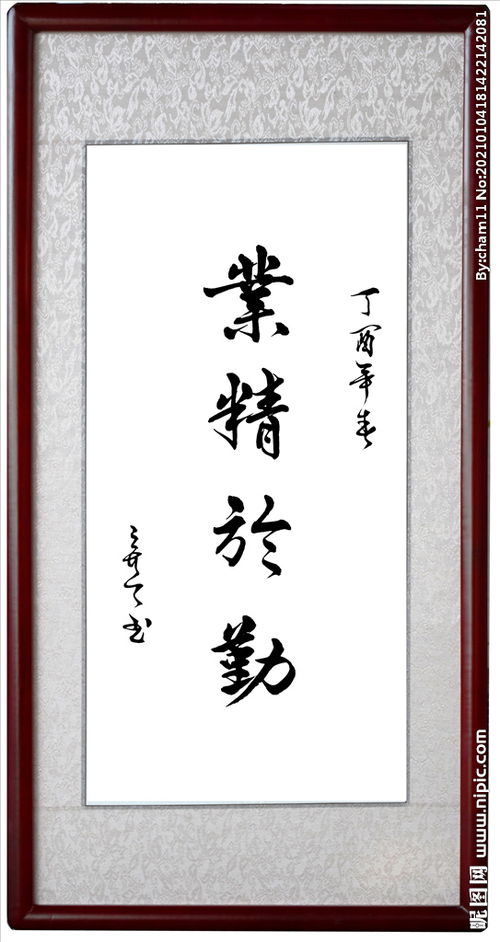 丁酉年春
業精於勤
书
By:cham11 No:20210104181422142081
昵图网 www.nipic.com